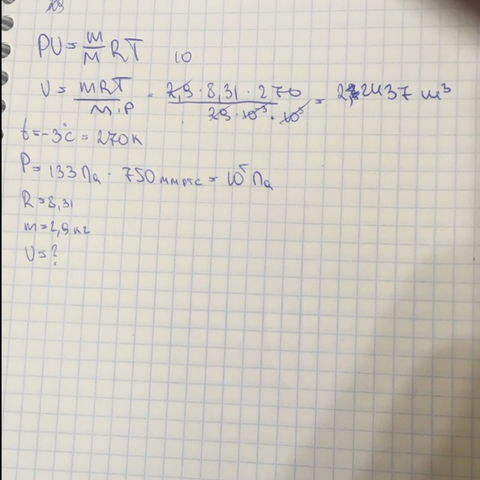 PV = m/M RT 10
V = mRT / M·P = 2,9 · 8,31 · 270 / 29 · 10⁻³ · 10⁵ = 2,2437 м³
t = -3°C = 270 К
P = 133 Па · 750 мм рт с = 10⁵ Па
R = 8,31
m = 2,9 кг
V = ?